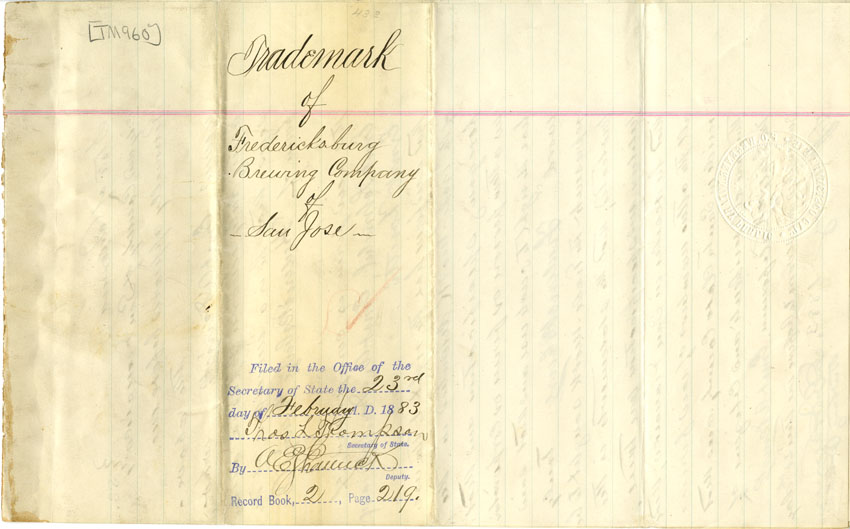 [TM960]
432
Trademark
of
Fredericksburg
Brewing Company
of
San Jose
Filed in the Office of the
Secretary of State the 23rd
day of February A. D. 1883
Thos L Thompson
Secretary of State.
By
Deputy.
Record Book, 2, Page 219.